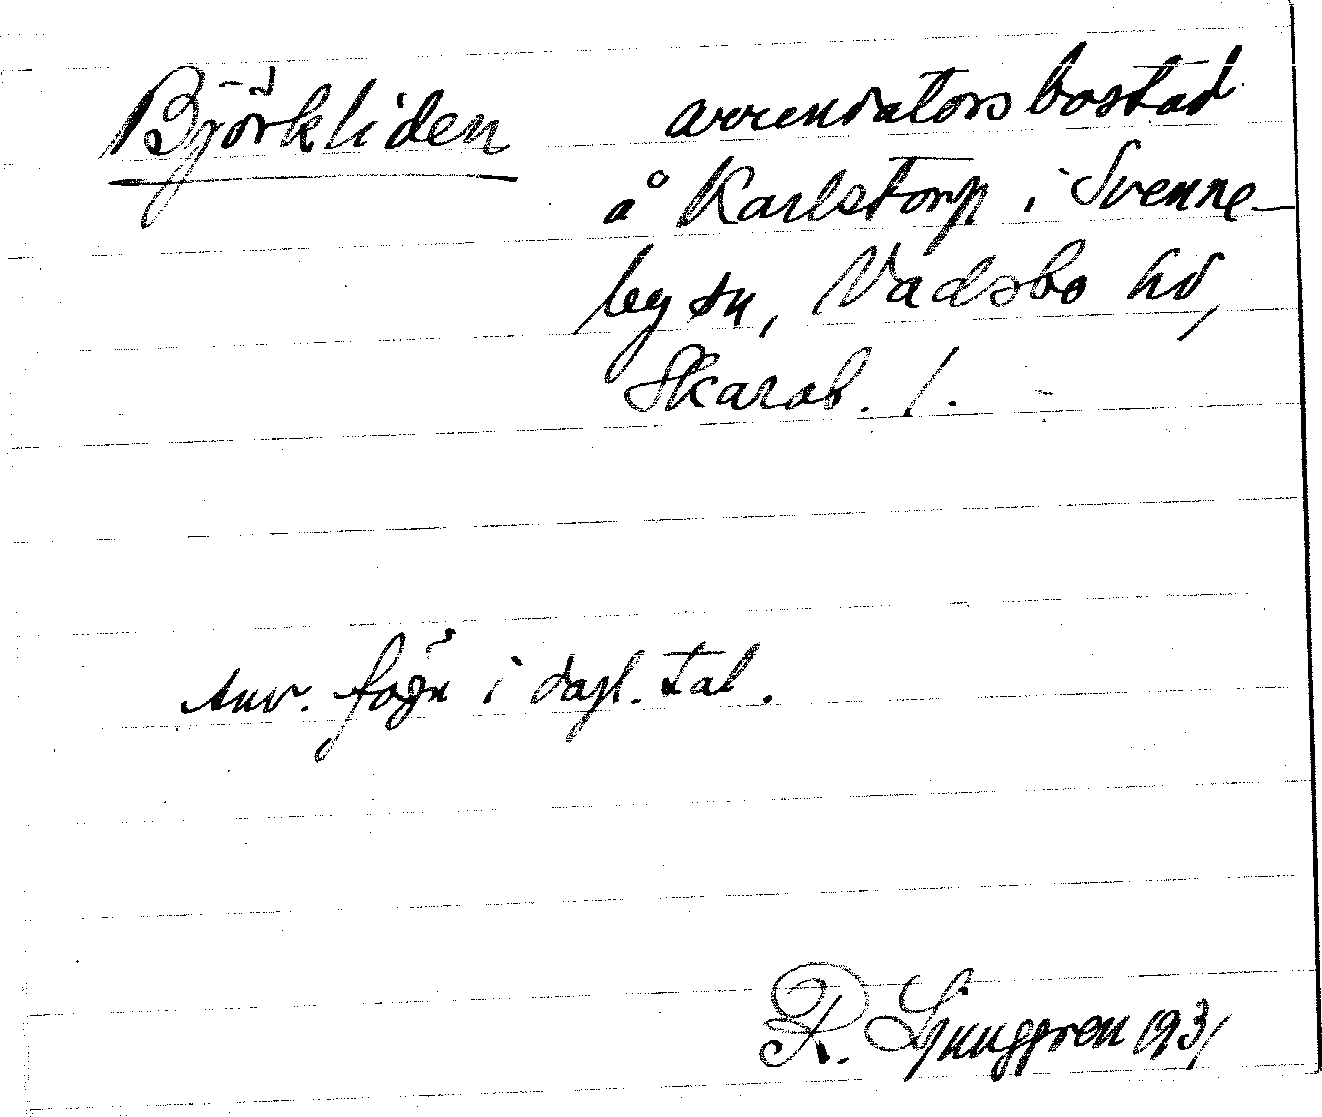 Björkliden arrendatorsbostad
å Karlstorp i Svenne-
by sn, Vadsbo hd,
Skarab. l.
Anv. föga i dagl. tal.
R. Ljunggren 1931